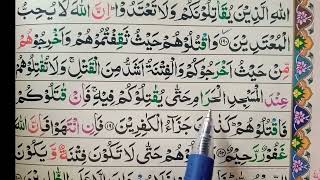 اللهِ الَّذِيْنَ يُقَاتِلُوْنَكُمْ وَلَا تَعْتَدُوْا ؕ اِنَّ اللهَ لَا يُحِبُّ
الْمُعْتَدِيْنَ ﴿۱۹۰﴾ وَاقْتُلُوْهُمْ حَيْثُ ثَقِفْتُمُوْهُمْ وَاَخْرِجُوْهُمْ
مِّنْ حَيْثُ اَخْرَجُوْكُمْ وَالْفِتْنَةُ اَشَدُّ مِنَ الْقَتْلِ ۚ وَلَا تُقٰتِلُوْهُمْ
عِنْدَ الْمَسْجِدِ الْحَرَامِ حَتّٰى يُقٰتِلُوْكُمْ فِيْهِ ۚ فَاِنْ قٰتَلُوْكُمْ
فَاقْتُلُوْهُمْ ؕ كَذٰلِكَ جَزَآءُ الْكٰفِرِيْنَ ﴿۱۹۱﴾ فَاِنِ انْتَهَوْا فَاِنَّ اللهَ
غَفُوْرٌ رَّحِيْمٌ ﴿۱۹۲﴾ وَقٰتِلُوْهُمْ حَتّٰى لَا تَكُوْنَ فِتْنَةٌ وَّيَكُوْنَ